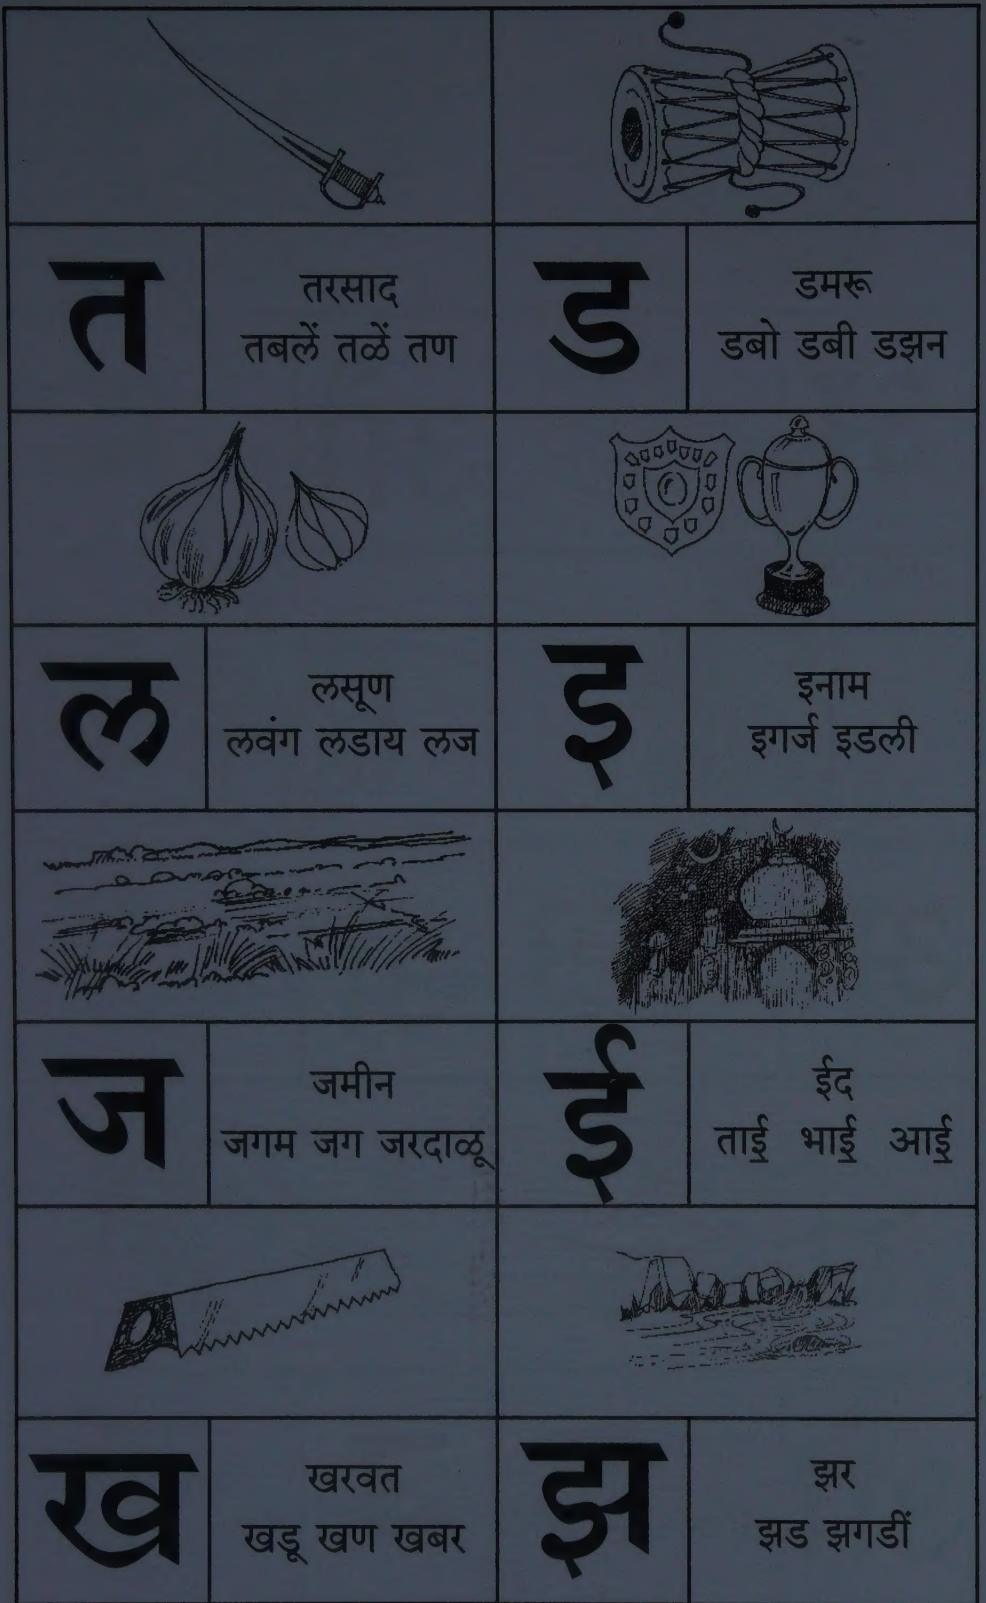 त
तरसाद
तबलें तळें तण
ड
डमरू
डबो डबी डझन
ल
लसूण
लवंग लडाय लज
इ
इनाम
इगर्ज इडली
ज
जमीन
जगम जग जरदाळू
ई
ईद
ताई भाई आई
ख
खरवत
खडू खण खबर
झ
झर
झड झगडीं